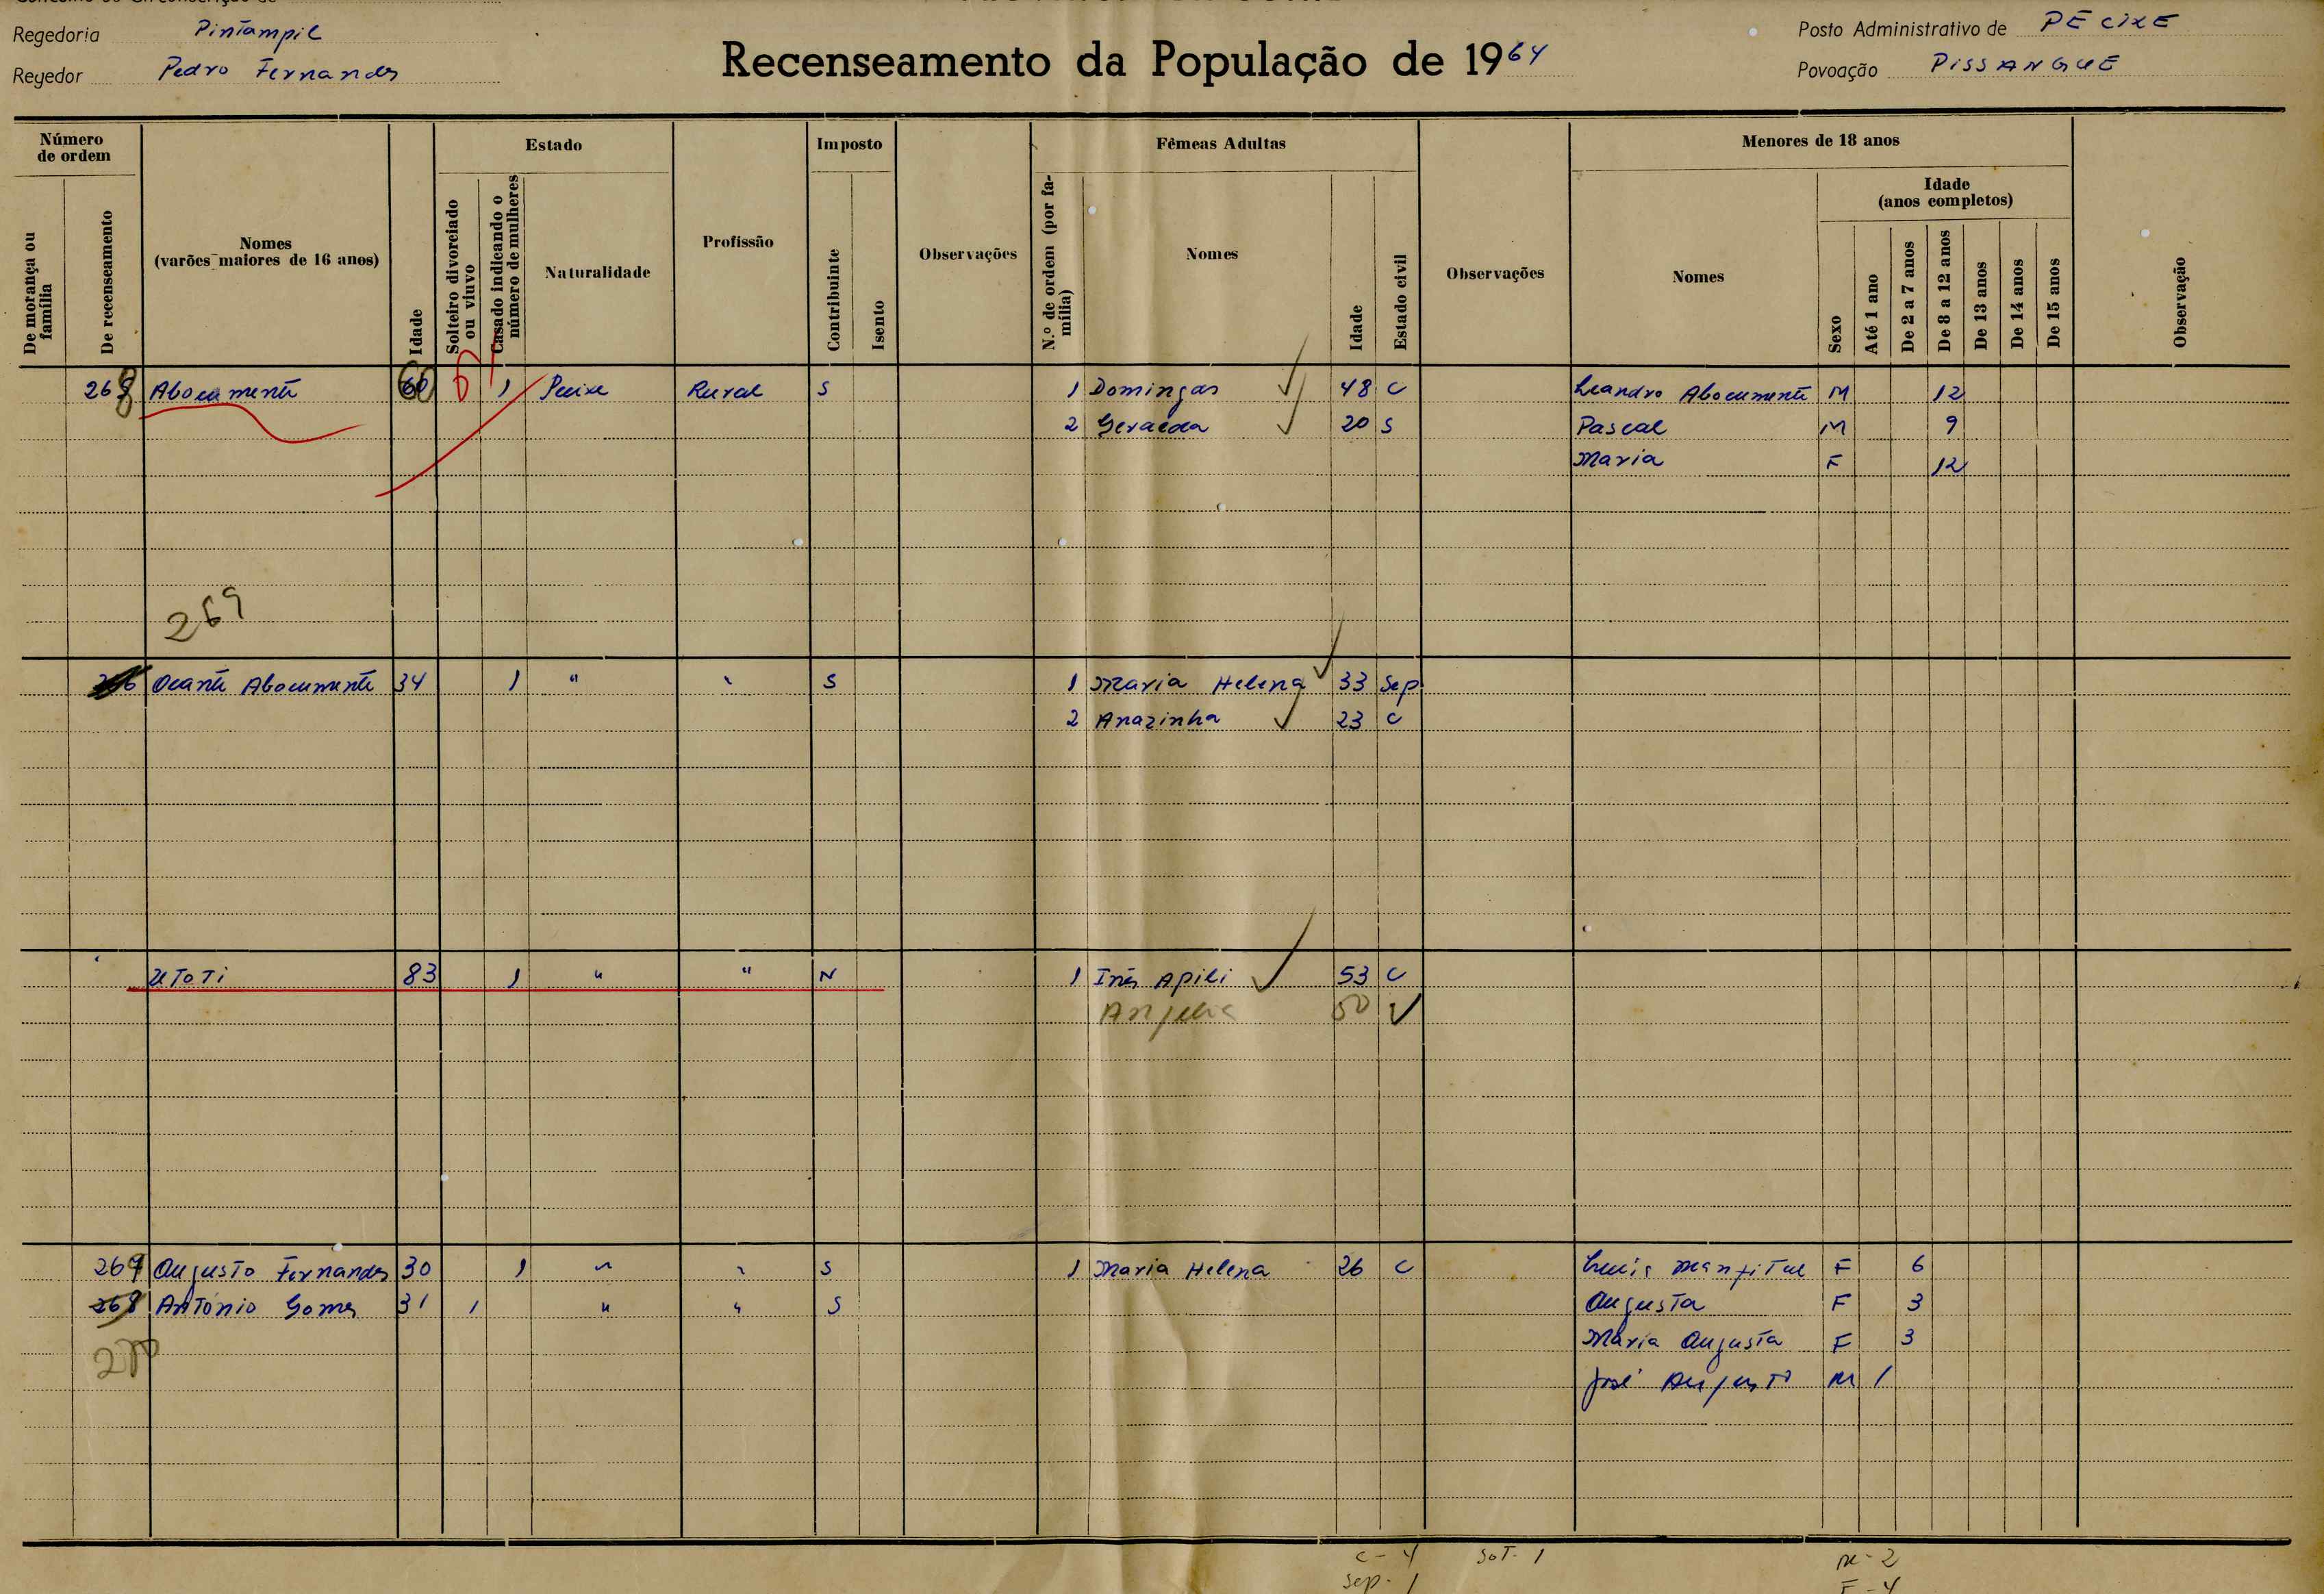 Regedoria Pintampil
Regedor Pedro Fernandes
Recenseamento da População de 1964
Posto Administrativo de PÉCIXE
Povoação PISSANGUE
Número de ordem
De morança ou família
De recenseamento
Nomes (varões maiores de 16 anos)
Idade
Estado
Solteiro divorciado ou viuvo
Casado indicando o número de mulheres
Naturalidade
Profissão
Imposto
Contribuinte
Isento
Observações
Fêmeas Adultas
N.º de ordem (por família)
Nomes
Idade
Estado civil
Observações
Menores de 18 anos
Nomes
Sexo
Idade (anos completos)
Até 1 ano
De 2 a 7 anos
De 8 a 12 anos
De 13 anos
De 14 anos
De 15 anos
Observação
268 Abocumentè 60 1 Pecixe Rural S 1 Domingas 48 C Leandro Abocumentè M 12
2 Geralda 20 S Pascal M 9
Maria F 12
269
Ocantè Abocumentè 34 1 " " S 1 Maria Helena 33 Sep
2 Anazinha 23 C
Utoti 83 1 " " N 1 Inês Apili 53 C
50 V
269 Augusto Fernandes 30 1 " " S 1 Maria Helena 26 C F 6
268 António Gomes 31 1 " " S Augusta F 3
270 Maria Augusta F 3
José Augusto M 1
C - 4 Sol. 1 M - 2
Sep. 1 F - 4